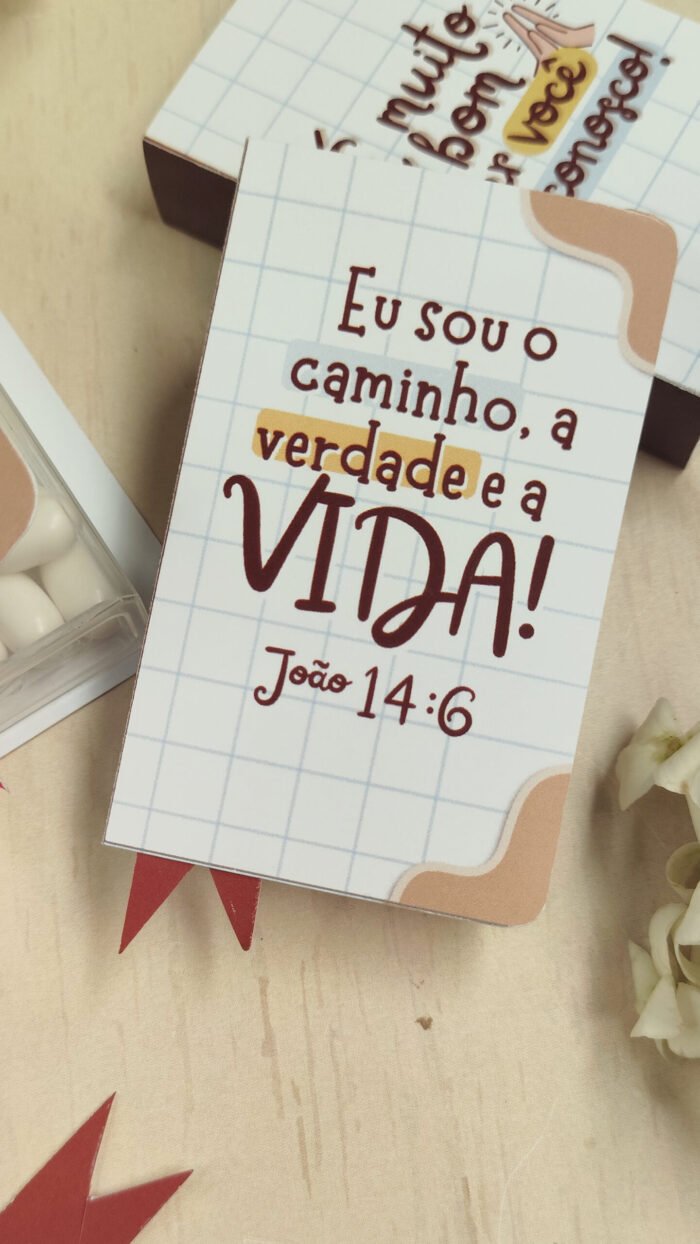 muito
bom
você
conosco!
Eu sou o
caminho, a
verdade e a
VIDA!
João 14:6